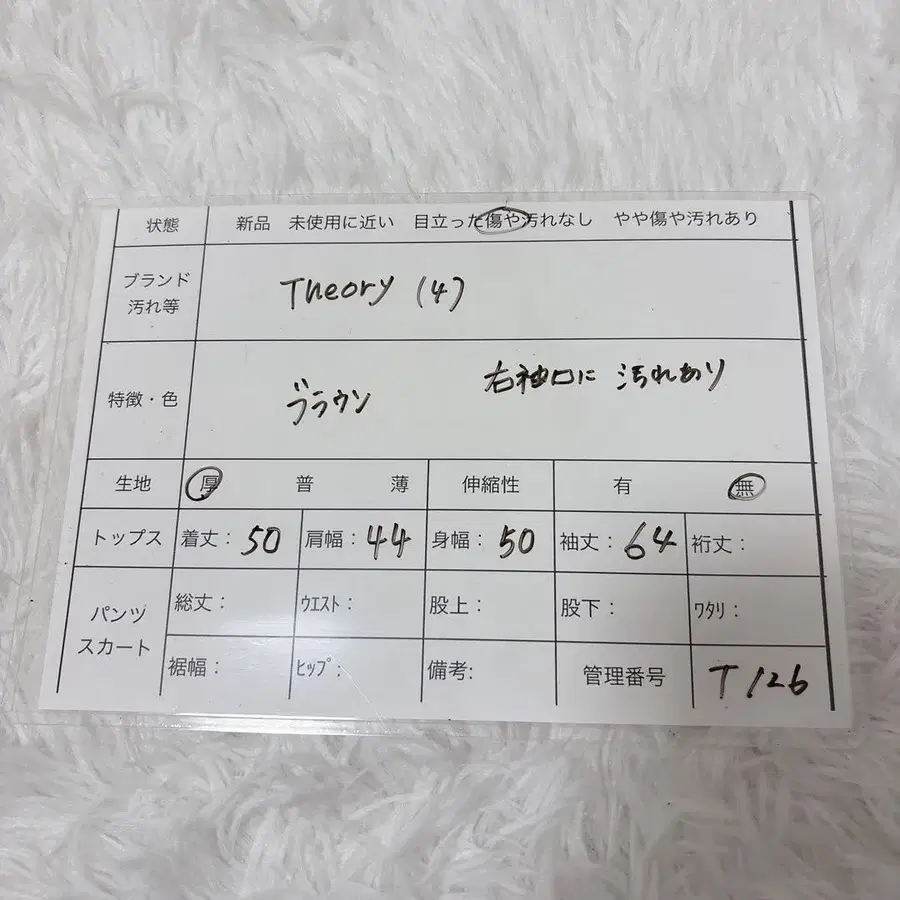 状態 新品 未使用に近い 目立った傷や汚れなし やや傷や汚れあり
ブランド
汚れ等
Theory (4)
特徴・色
ブラウン
右袖口に 汚れあり
生地 厚 普 薄 伸縮性 有 無
トップス 着丈: 50 肩幅: 44 身幅: 50 袖丈: 64 裄丈:
パンツ
スカート
総丈: ウエスト: 股上: 股下: ワタリ:
裾幅: ヒップ: 備考: 管理番号 T126